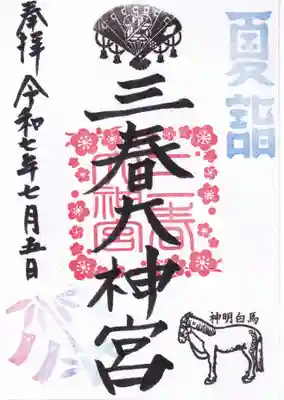 夏詣
三春大神宮
三春大神宮
奉拝 令和七年七月五日
神明白馬